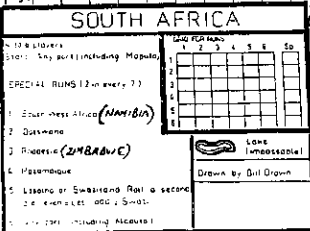 SOUTH AFRICA
players
Start: Any port (including Maputo)
SPECIAL RUNS (2 in every 7)
1 South West Africa (NAMIBIA)
2 Botswana
3 Rhodesia (ZIMBABWE)
4 Mozambique
5 Lesotho or Swaziland Roll a second
6 Any port (including Maputo)
GRID FOR RUNS
1 2 3 4 5 6 Sp
1
2
3
4
5
6
Lake
(impassable)
Drawn by Bill Brown